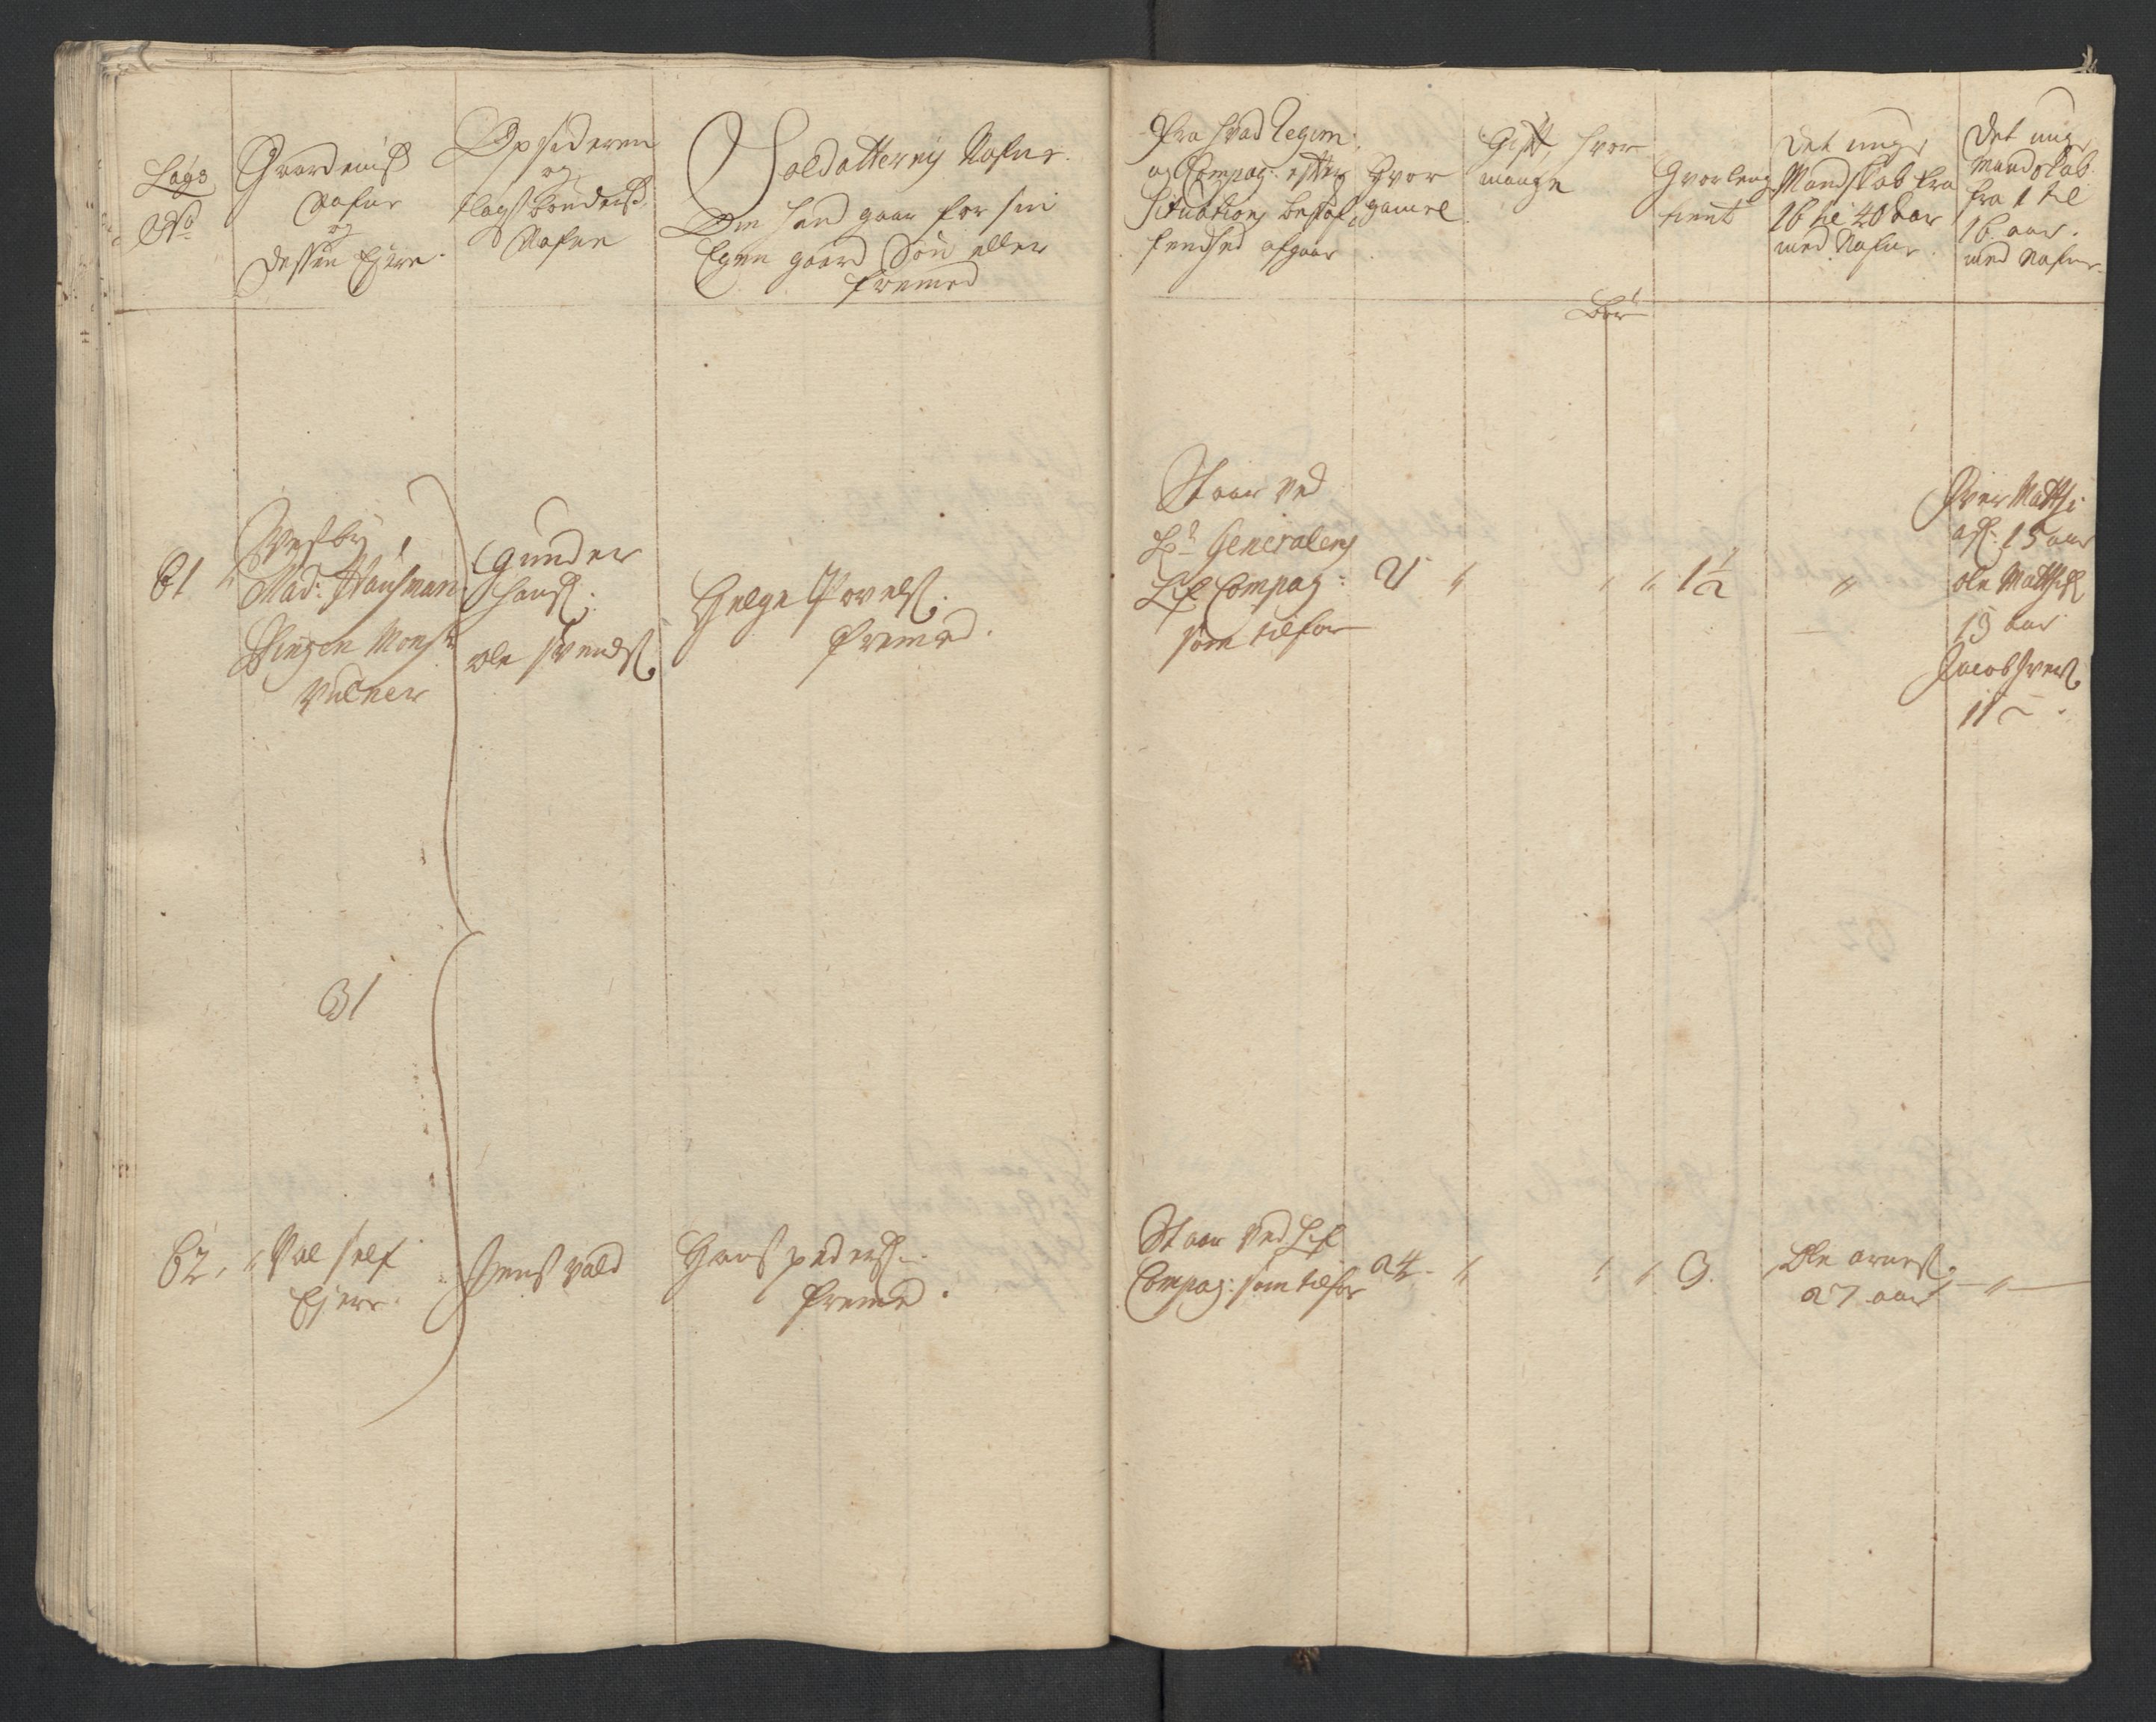 Lægs
No
Gaardenis
Nafne
og
dessen Ejere.
Opsideren
og
Lægs bøndernis
Nafne
Soldatternis Nafne.
Om hand gaar for sin
Egen gaard Søn eller
fremed
Fra hvad Regim:
og Compag: efter
Situations beskaf-
fenhed afgaar
Hvor
gamel.
Gift, hvor
mange
Hvorlenge
tient
Det unge
Mandskab fra
16 til 40 aar
med Nafne.
Det unge
Mandskab
fra 1 til
16 aar.
med Nafne.
Bør
61
Vestby,
Mad: Hausman
Bingen Monsr
Vulner
Gunder
Hans.
Ole Svends.
Helge Povels.
fremed.
Staar ved
Lt Generalens
Lif Compag:
som tilfor
21 " " " 1½ "
Iver Matthi
as: 15 aar
Ole Matthis
13 aar
Jacob Ivers.
11 –.
31
62. " Val self
Ejere.
Jens Vald
Hans peders.
fremed.
Staar ved Lif
Compag: som tilfor
24. " " " 3.
Ole Arnes.
27 aar
"